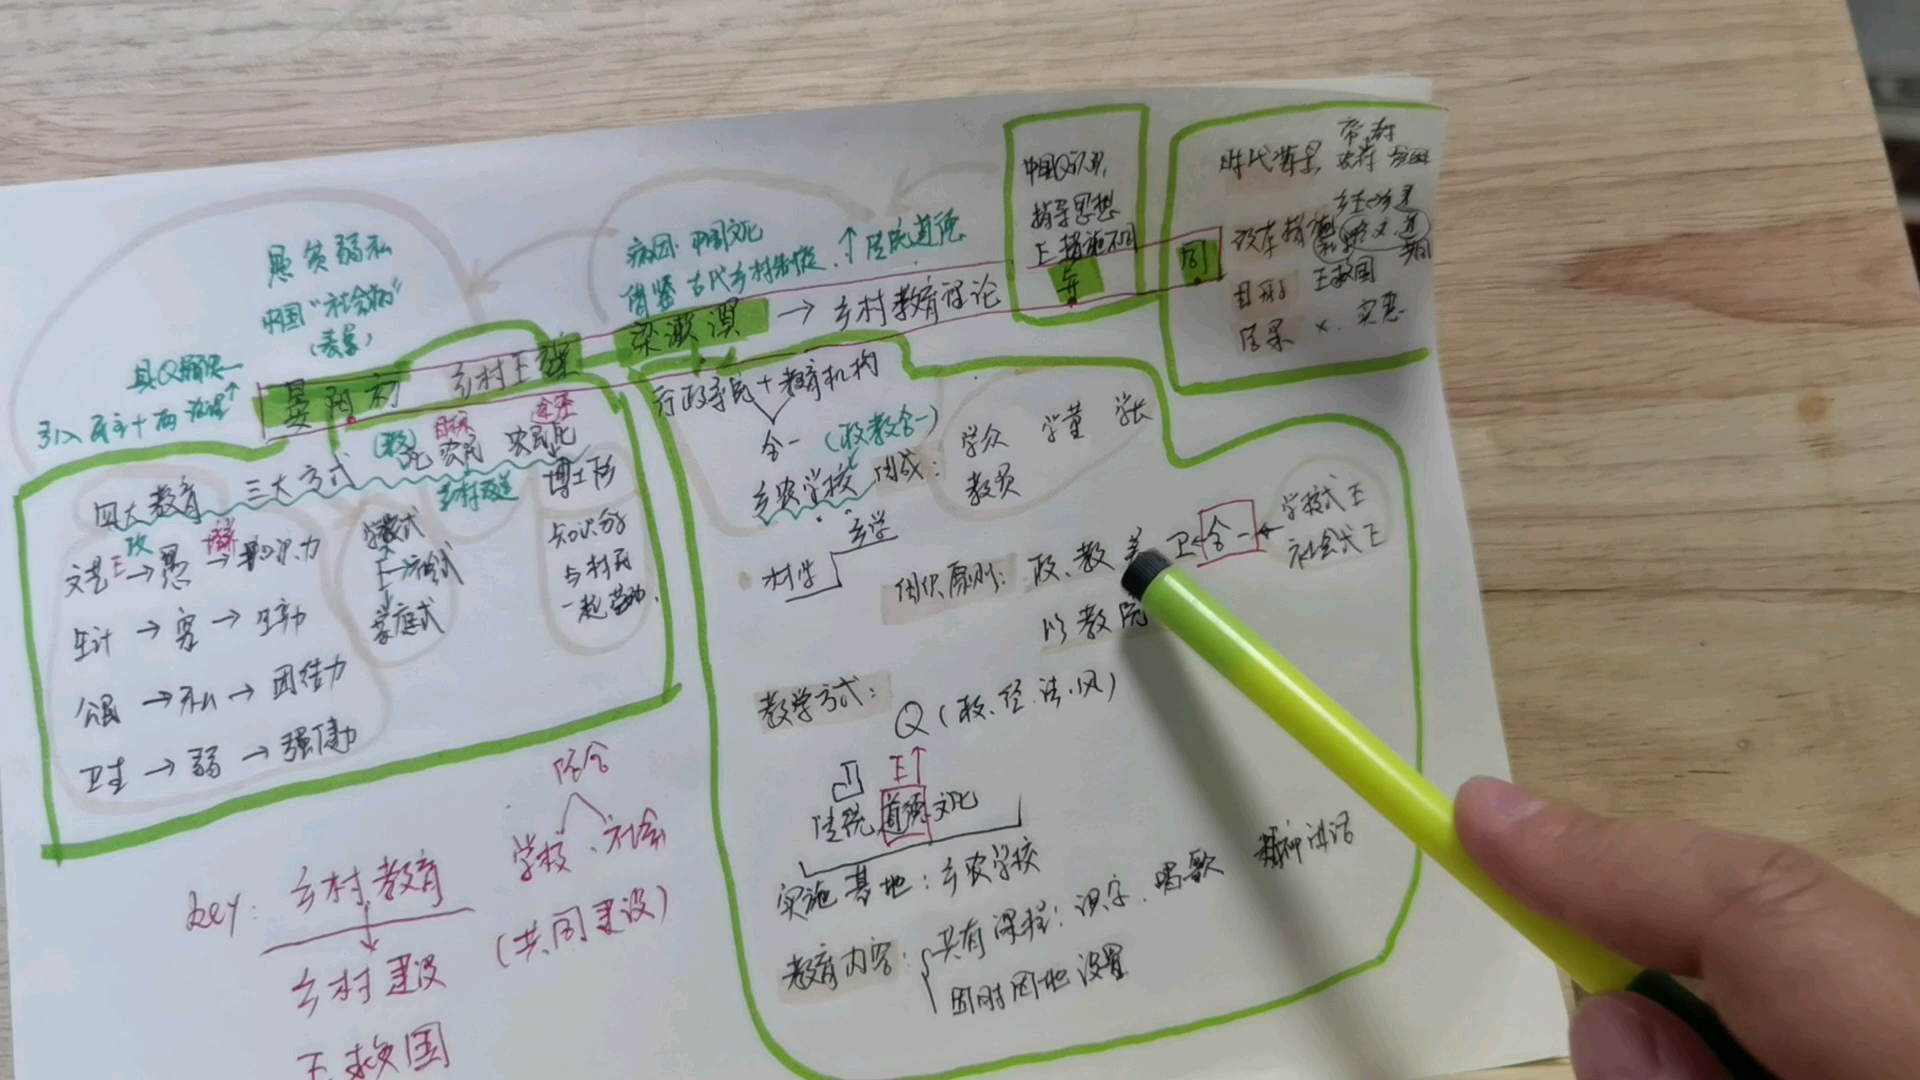 愚贫弱私
中国“社会病”
(表象)
具Q解决
引入民主+西治理↑
晏阳初
乡村E探
病因:中国文化
借鉴古代乡村制度.↑传统道德
梁漱溟 → 乡村教育理论
中国Q认识,
指导思想
E措施不同
异
同
时代背景
改革措施
目的
E救国
结果 ×. 实患
四大教育 三大方式
(教)
目标
途径
化农民 农民化
乡村改造
文艺E→愚→知识力
攻
培养
生计→穷→生产力
公民→私→团结力
卫生→弱→强健力
学校式
社会式
家庭式
博士下乡
知识分子
与村民
一起劳动.
行政系统+教育机构
合一 (政教合一)
乡农学校 组成: 学众 学董 学长
教员
乡学
村学
组织原则: 政、教、养、卫 合一 ← 学校式E
社会式E
以教统
教学方式:
Q(政、经、法、风)
E↑
传统道德文化
实施基地:乡农学校
教育内容: 共有课程:识字、唱歌 精神讲话
因时因地设置
key: 乡村教育
乡村建设
E救国
结合
学校、社会
(共同建设)